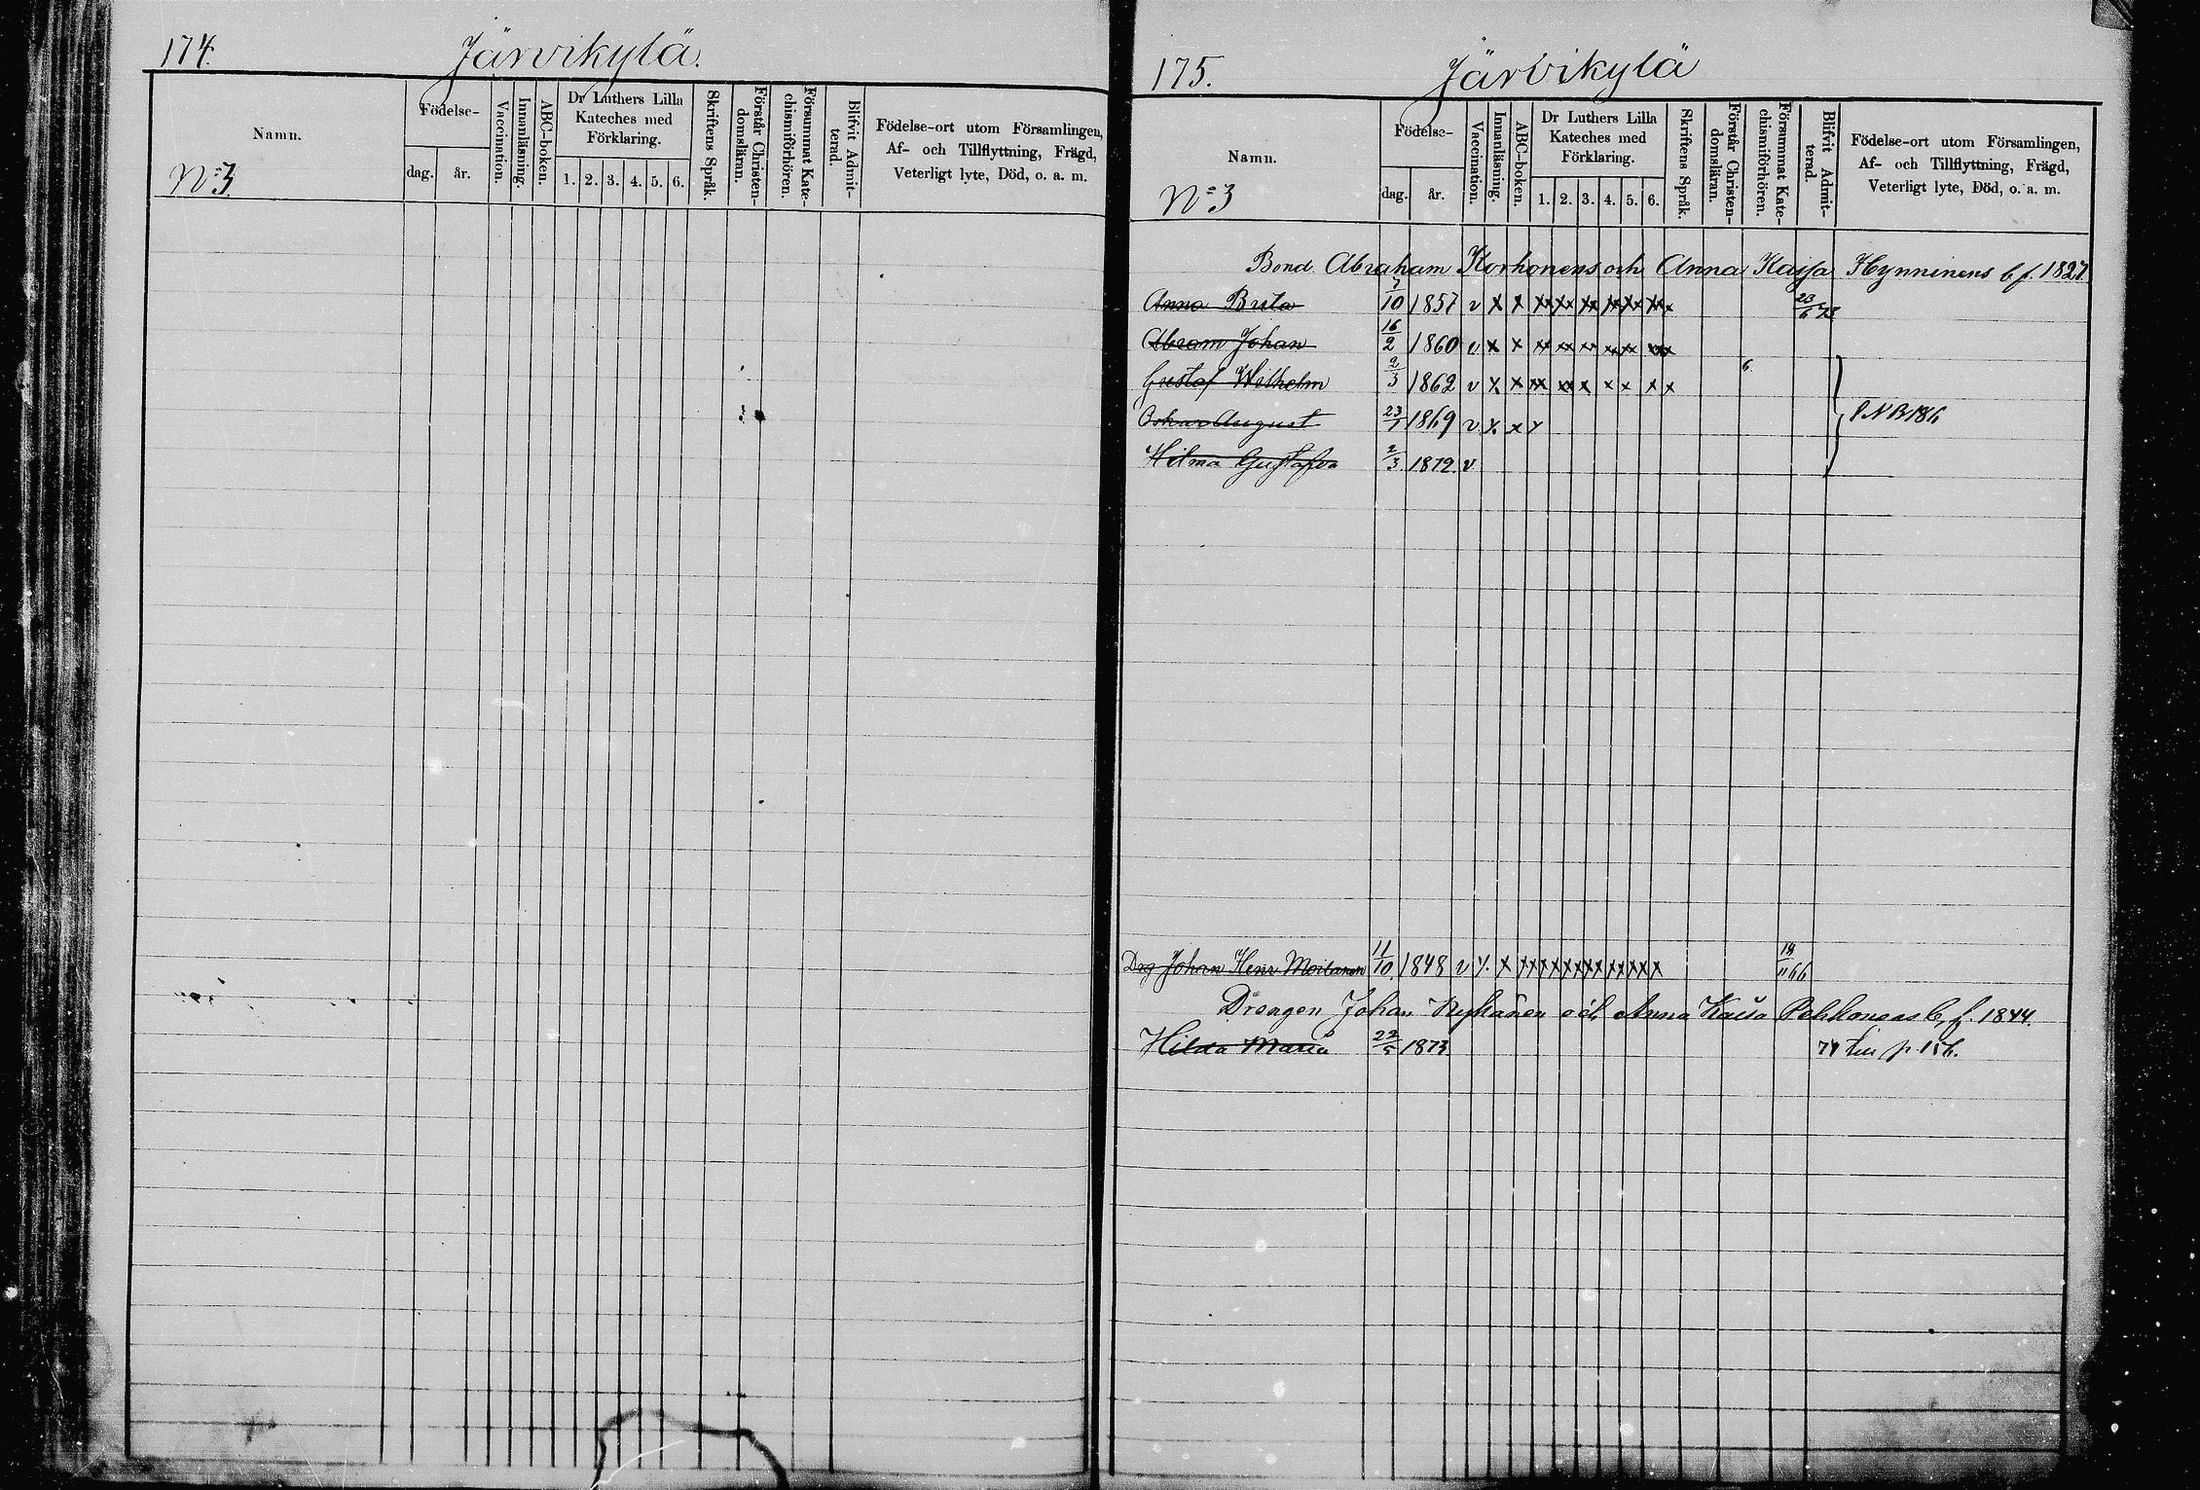 174.
Järvikylä.
Namn.
Födelse-
dag. år.
Vaccination.
Innanläsning.
ABC-boken.
Dr Luthers Lilla Kateches med Förklaring.
1. 2. 3. 4. 5. 6.
Skriftens Språk.
Förstår Christen-domsläran.
Försummat Kate-chismiförhören.
Blifvit Admit-terad.
Födelse-ort utom Församlingen,
Af- och Tillflyttning, Frägd,
Veterligt lyte, Död, o. a. m.
N:3.
175.
Järvikylä
Namn.
Födelse-
dag. år.
Vaccination.
Innanläsning.
ABC-boken.
Dr Luthers Lilla Kateches med Förklaring.
1. 2. 3. 4. 5. 6.
Skriftens Språk.
Förstår Christen-domsläran.
Försummat Kate-chismiförhören.
Blifvit Admit-terad.
Födelse-ort utom Församlingen,
Af- och Tillflyttning, Frägd,
Veterligt lyte, Död, o. a. m.
N:3
Bond. Abraham Korhonens och Anna Kaisa Hynninens b. f. 1827.
Anna Brita 7/10 1857 v x x xx xx xx xx xx xx x
Abram Johan 16/2 1860 v x x xx xx xx xx xx xx
Gustaf Wilhelm 2/3 1862 v x x xx xx x x x x x 6.
Oskar August 23/7 1869 v x x x
Hilma Gustafva 2/3 1872. v
Drg Johan Henr Moilanen 11/10 1848 v x x xx xx xx xx xx xx 18/11 66
Drengen Johan Nykänen och Anna Kaisa Pekkonens b, f. 1844.
Hilda Maria 22/5 1873 74 p. 156.